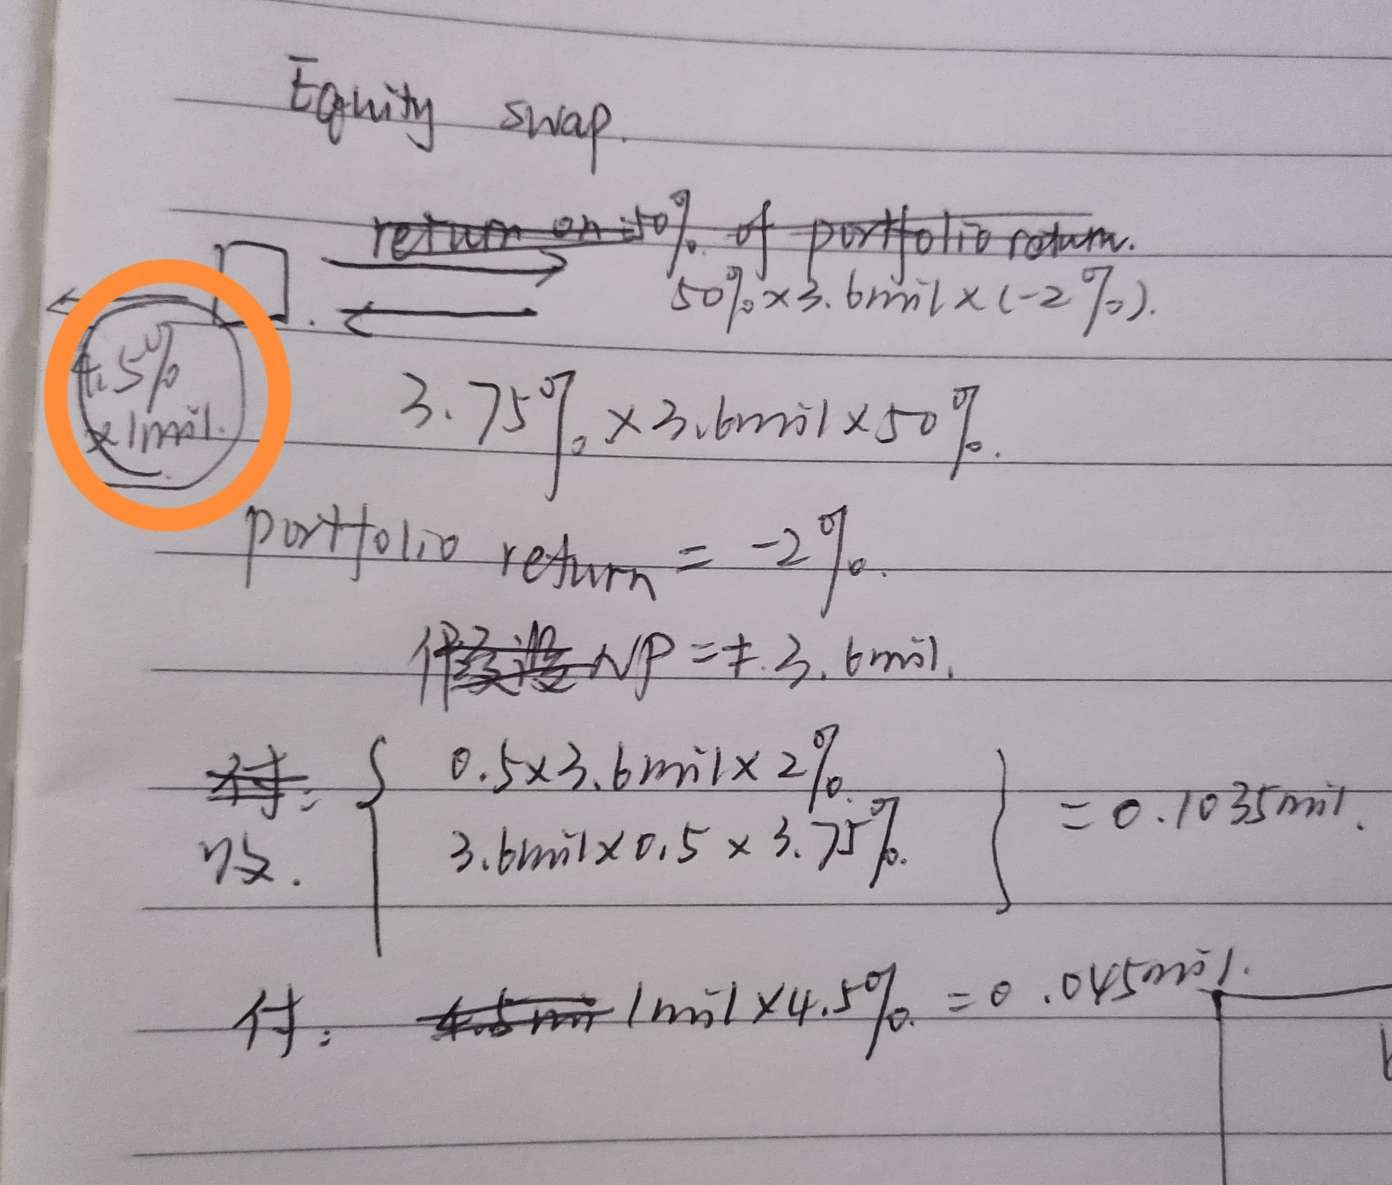 Equity swap.
return on 50% of portfolio return.
50% × 3.6mil × (-2%).
4.5%
× 1mil.
3.75% × 3.6mil × 50%.
portfolio return = -2%.
NP = 3.6mil.
付:
0.5 × 3.6mil × 2%.
收.
3.6mil × 0.5 × 3.75%.
= 0.1035mil.
付: 1mil × 4.5%. = 0.045mil.